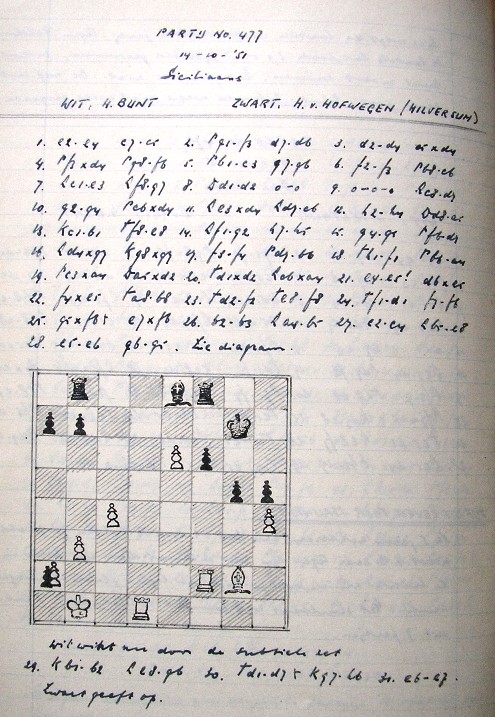 PARTIJ No. 477
14-10-'51
Siciliaans
WIT: H. BUNT ZWART: H. v. HOFWEGEN (HILVERSUM)
1. e2-e4 c7-c5 2. Pg1-f3 d7-d6 3. d2-d4 c5xd4
4. Pf3xd4 Pg8-f6 5. Pb1-c3 g7-g6 6. f2-f3 Pb8-c6
7. Lc1-e3 Lf8-g7 8. Dd1-d2 o-o 9. o-o-o Lc8-d7
10. g2-g4 Pc6xd4 11. Le3xd4 Ld7-c6 12. h2-h4 Dd8-a5
13. Kc1-b1 Tf8-e8 14. Lf1-g2 h7-h5 15. g4-g5 Pf6-d7
16. Ld4xg7 Kg8xg7 17. f3-f4 Pd7-b6 18. Th1-f1 Pb6-a4
19. Pc3xa4 Da5xd2 20. Td1xd2 Lc6xa4 21. e4-e5! d6xe5
22. f4xe5 Ta8-b8 23. Td2-f2 Te8-f8 24. Tf1-d1 f7-f6
25. g5xf6+ e7xf6 26. b2-b3 La4-b5 27. c2-c4 Lb5-e8
28. e5-e6 g6-g5. Zie diagram.
wit wint nu door de subtiele zet
29. Kb1-b2 Le8-g6 30. Td1-d7+ Kg7-h6 31. e6-e7.
Zwart geeft op.